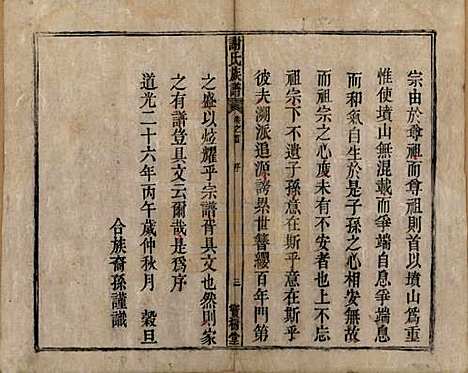 宗由於尊祖而尊祖則首以墳山為重
惟使墳山無混載而爭端自息爭端息
而和氣自生於是子孫之心相安無故
而祖宗之心度未有不安者也上不忘
祖宗下不遺子孫意在斯乎意在斯乎
彼夫溯派追源誇累世簪纓百年門第
謝氏族譜
卷之首
序
三
寶樹堂
之盛以炫耀乎宗譜者具文也然則家
之有譜豈具文云爾哉是為序
道光二十六年丙午歲仲秋月 穀旦
合族裔孫謹識